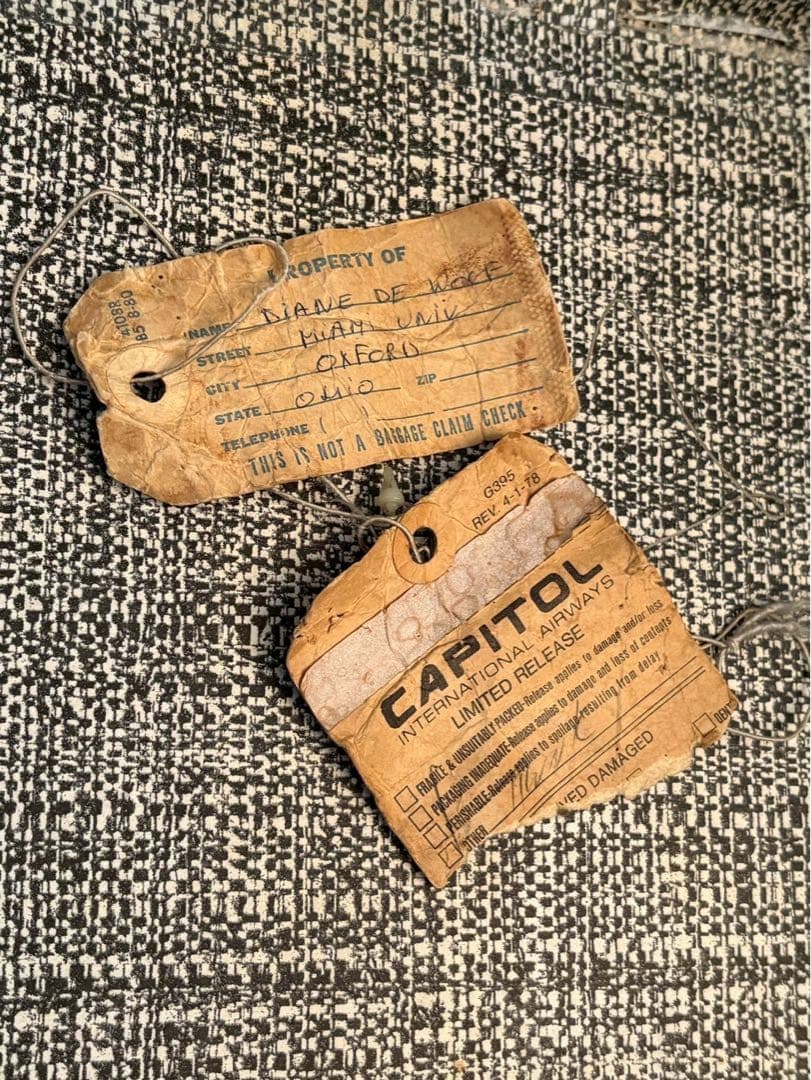 #1088
85 8-80
PROPERTY OF
NAME DIANE DE WOLF
STREET MIAMI UNIV
CITY OXFORD
STATE OHIO ZIP
TELEPHONE ( )
THIS IS NOT A BAGGAGE CLAIM CHECK
G395
REV. 4-1-78
CAPITOL
INTERNATIONAL AIRWAYS
LIMITED RELEASE
FRAGILE & UNSUITABLY PACKED-Release applies to damage and/or loss
PACKAGING INADEQUATE-Release applies to damage and loss of contents
PERISHABLE-Release applies to spoilage resulting from delay
OTHER
VED DAMAGED
DENT